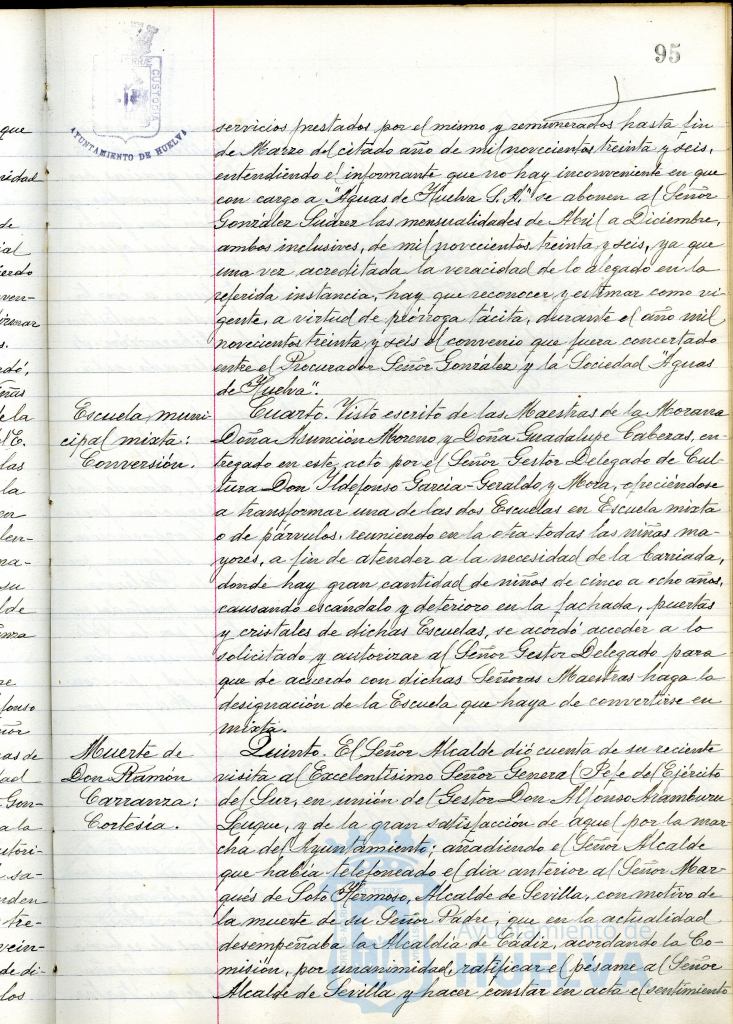 95
CUSTODIA
AYUNTAMIENTO DE HUELVA
servicios prestados por el mismo y remunerados hasta fin
de Marzo del citado año de mil novecientos treinta y seis,
entendiendo el informante que no hay inconveniente en que
con cargo a "Aguas de Huelva S.A." se abonen al Señor
González Suárez las mensualidades de Abril a Diciembre,
ambos inclusives, de mil novecientos treinta y seis, ya que
una vez acreditada la veracidad de lo alegado en la
referida instancia, hay que reconocer y estimar como vi-
gente, a virtud de prórroga tácita, durante el año mil
novecientos treinta y seis el convenio que fuera concertado
entre el Procurador Señor González y la Sociedad "Aguas
de Huelva".
Escuela muni-
cipal mixta:
Conversión.
Cuarto. Visto escrito de las Maestras de la Morana
Doña Asunción Moreno y Doña Guadalupe Caberas, en-
tregado en este acto por el Señor Gestor Delegado de Cul-
tura Don Ildefonso García-Geraldo y Mora, ofreciéndose
a transformar una de las dos Escuelas en Escuela mixta
o de párvulos, reuniendo en la otra todas las niñas ma-
yores, a fin de atender a la necesidad de la barriada,
donde hay gran cantidad de niños de cinco a ocho años,
causando escándalo y deterioro en la fachada, puertas
y cristales de dichas Escuelas, se acordó acceder a lo
solicitado y autorizar al Señor Gestor Delegado para
que de acuerdo con dichas Señoras Maestras haga la
designación de la Escuela que haya de convertirse en
mixta.
Muerte de
Don Ramón
Carranza:
Cortesía.
Quinto. El Señor Alcalde dió cuenta de su reciente
visita al Excelentísimo Señor General Jefe del Ejército
del Sur, en unión del Gestor Don Alfonso Aramburu
Luque, y de la gran satisfacción de aquel por la mar-
cha del Ayuntamiento; añadiendo el Señor Alcalde
que había telefoneado el día anterior al Señor Mar-
qués de Soto Hermoso, Alcalde de Sevilla, con motivo de
la muerte de su Señor Padre, que en la actualidad
desempeñaba la Alcaldía de Cádiz, acordando la Co-
misión, por unanimidad, ratificar el pésame al Señor
Alcalde de Sevilla y hacer constar en acta el sentimiento
Ayuntamiento de
HUELVA